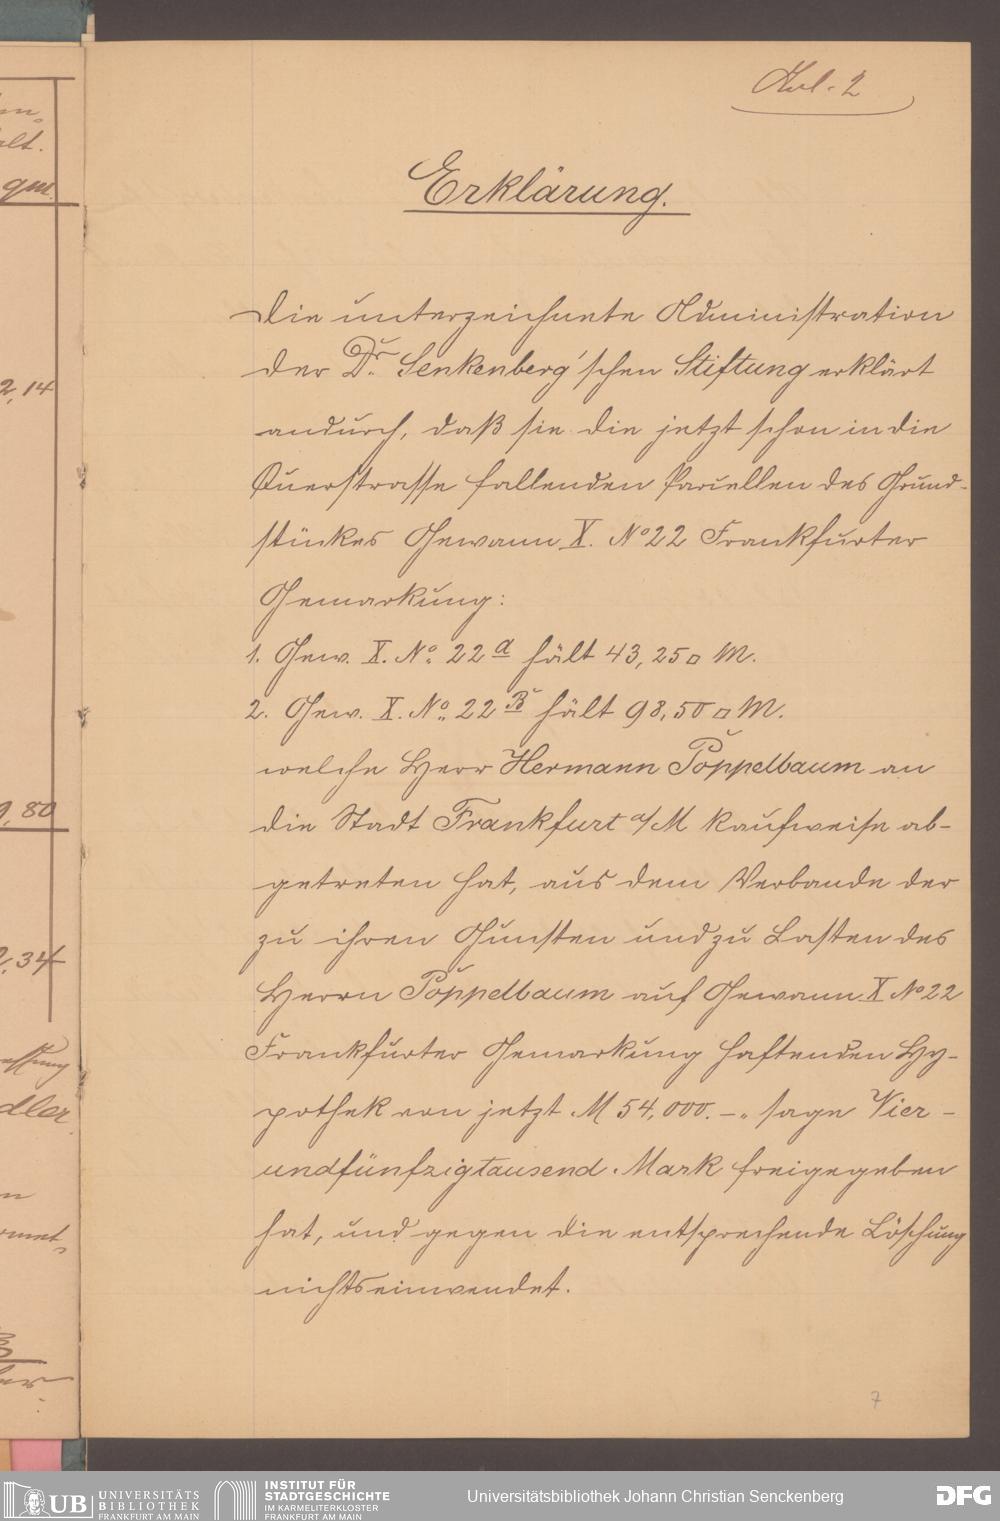 Anl. 2
Erklärung.
Die unterzeichnete Administration
der Dr. Senkenberg'schen Stiftung erklärt
andurch, daß sie die jetzt schon in die
Querstrasse fallenden Parzellen des Grund-
stückes Gewann X. No 22 Frankfurter
Gemarkung:
1. Gew. X. No. 22 a hält 43,25 □ M.
2. Gew. X. No. 22 B hält 98,50 □ M.
welche Herr Hermann Poppelbaum an
die Stadt Frankfurt a/M kaufweise ab-
getreten hat, aus dem Verbande der
zu ihren Gunsten und zu Lasten des
Herrn Poppelbaum auf Gewann X No 22
Frankfurter Gemarkung haftenden Hy-
pothek von jetzt M 54,000.–„ sage Vier-
undfünfzigtausend Mark freigegeben
hat, und gegen die entsprechende Löschung
nichts einwendet.
7
alt.
qm.
2,14
9,80
2,34
UB UNIVERSITÄTS
BIBLIOTHEK
FRANKFURT AM MAIN
INSTITUT FÜR
STADTGESCHICHTE
IM KARMELITERKLOSTER
FRANKFURT AM MAIN
Universitätsbibliothek Johann Christian Senckenberg
DFG